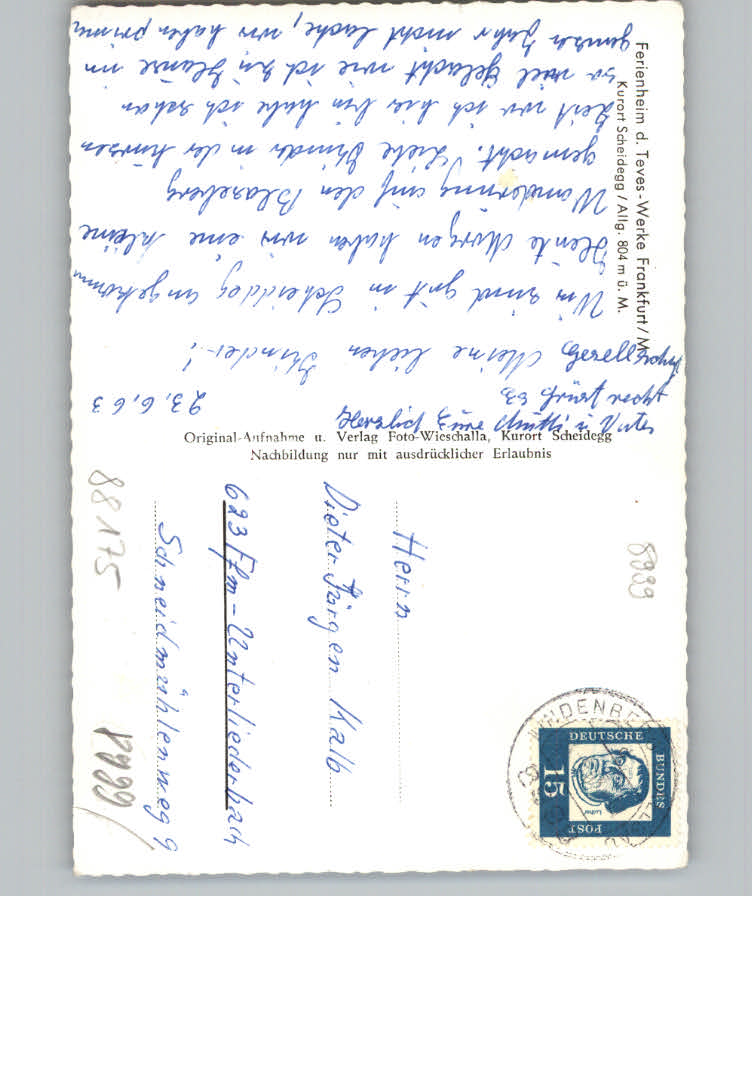 Ferienheim d. Teves-Werke Frankfurt/M.
Kurort Scheidegg / Allg. 804 m ü. M.
23.6.63
Meine lieben Kinder!
Wir sind gut in Scheidegg angekommen
Heute Morgen haben wir eine kleine
Wanderung auf den Blasenberg
gemacht. Liebe Kinder in der kurzen
Zeit wo ich hier bin habe ich schon
so viel gelacht wie ich zu Hause im
ganzen Jahr nicht lache, wir haben prima
Gesellschaft
Es grüßt recht
Herzlich Eure Mutti u. Vater
Original-Aufnahme u. Verlag Foto-Wieschalla, Kurort Scheidegg
Nachbildung nur mit ausdrücklicher Erlaubnis
Herrn
Dieter Jürgen Kalb
623 Ffm-Unterliederbach
Schneidmühlenweg 9
88175
8999
8999
DEUTSCHE
BUNDES
POST
15
Luther
LINDENBERG